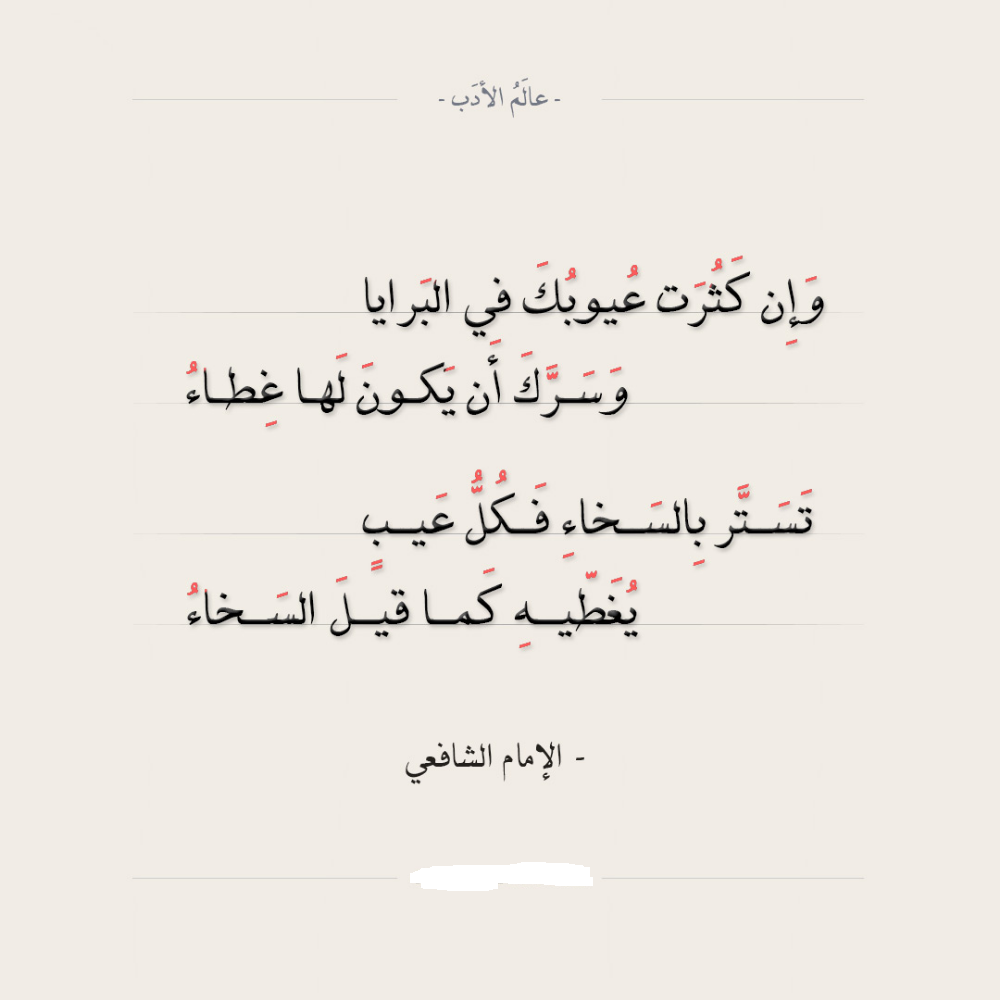 - عالَمُ الأدَب -
وَإِن كَثُرَت عُيوبُكَ في البَرايا
وَسَـرَّكَ أَن يَكـونَ لَها غِطـاءُ
تَسَـتَّر بِالسَـخاءِ فَـكُلُّ عَيـبٍ
يُغَطّيـهِ كَمـا قيـلَ السَـخاءُ
- الإمام الشافعي